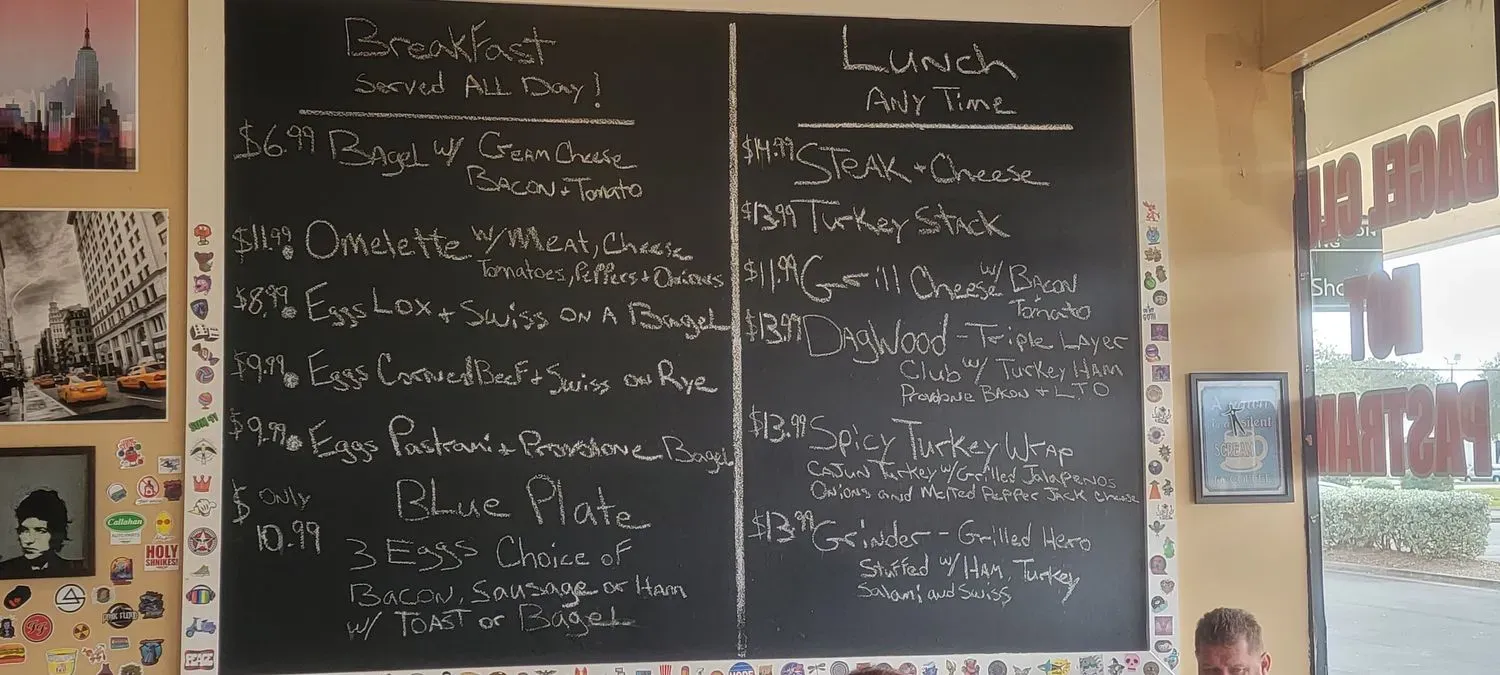 Breakfast
Served ALL Day!
$6.99 Bagel w/ Cream Cheese
BACON + Tomato
$11.99 Omelette w/ Meat, Cheese
Tomatoes, Peppers + Onions
$8.99 Eggs Lox + Swiss ON A Bagel
$9.99 Eggs Corned Beef + Swiss on Rye
$9.99 Eggs Pastrami + Provolone Bagel
$ ONLY
10.99
BLue Plate
3 Eggs Choice of
BACON, Sausage or Ham
w/ TOAST or Bagel
Lunch
ANY Time
$14.99 STEAK + Cheese
$13.99 Turkey Stack
$11.99 Grill Cheese w/ Bacon
Tomato
$13.99 DagWood - Triple LAyer
Club w/ Turkey HAM
Provolone BACON + L.T.O
$13.99 Spicy Turkey Wrap
CAJUN Turkey w/ Grilled Jalapenos
Onions and Melted Pepper Jack cheese
$13.99 Grinder - Grilled Hero
Stuffed w/ HAM, Turkey
Salami and Swiss
Callahan
HOLY
SHNIKES!
PINK FLOYD
PEACE
HOPE
BAGEL CLU
HOT
PASTRAM
Sho
A yawn
is a silent
SCREAM
for COFFEE